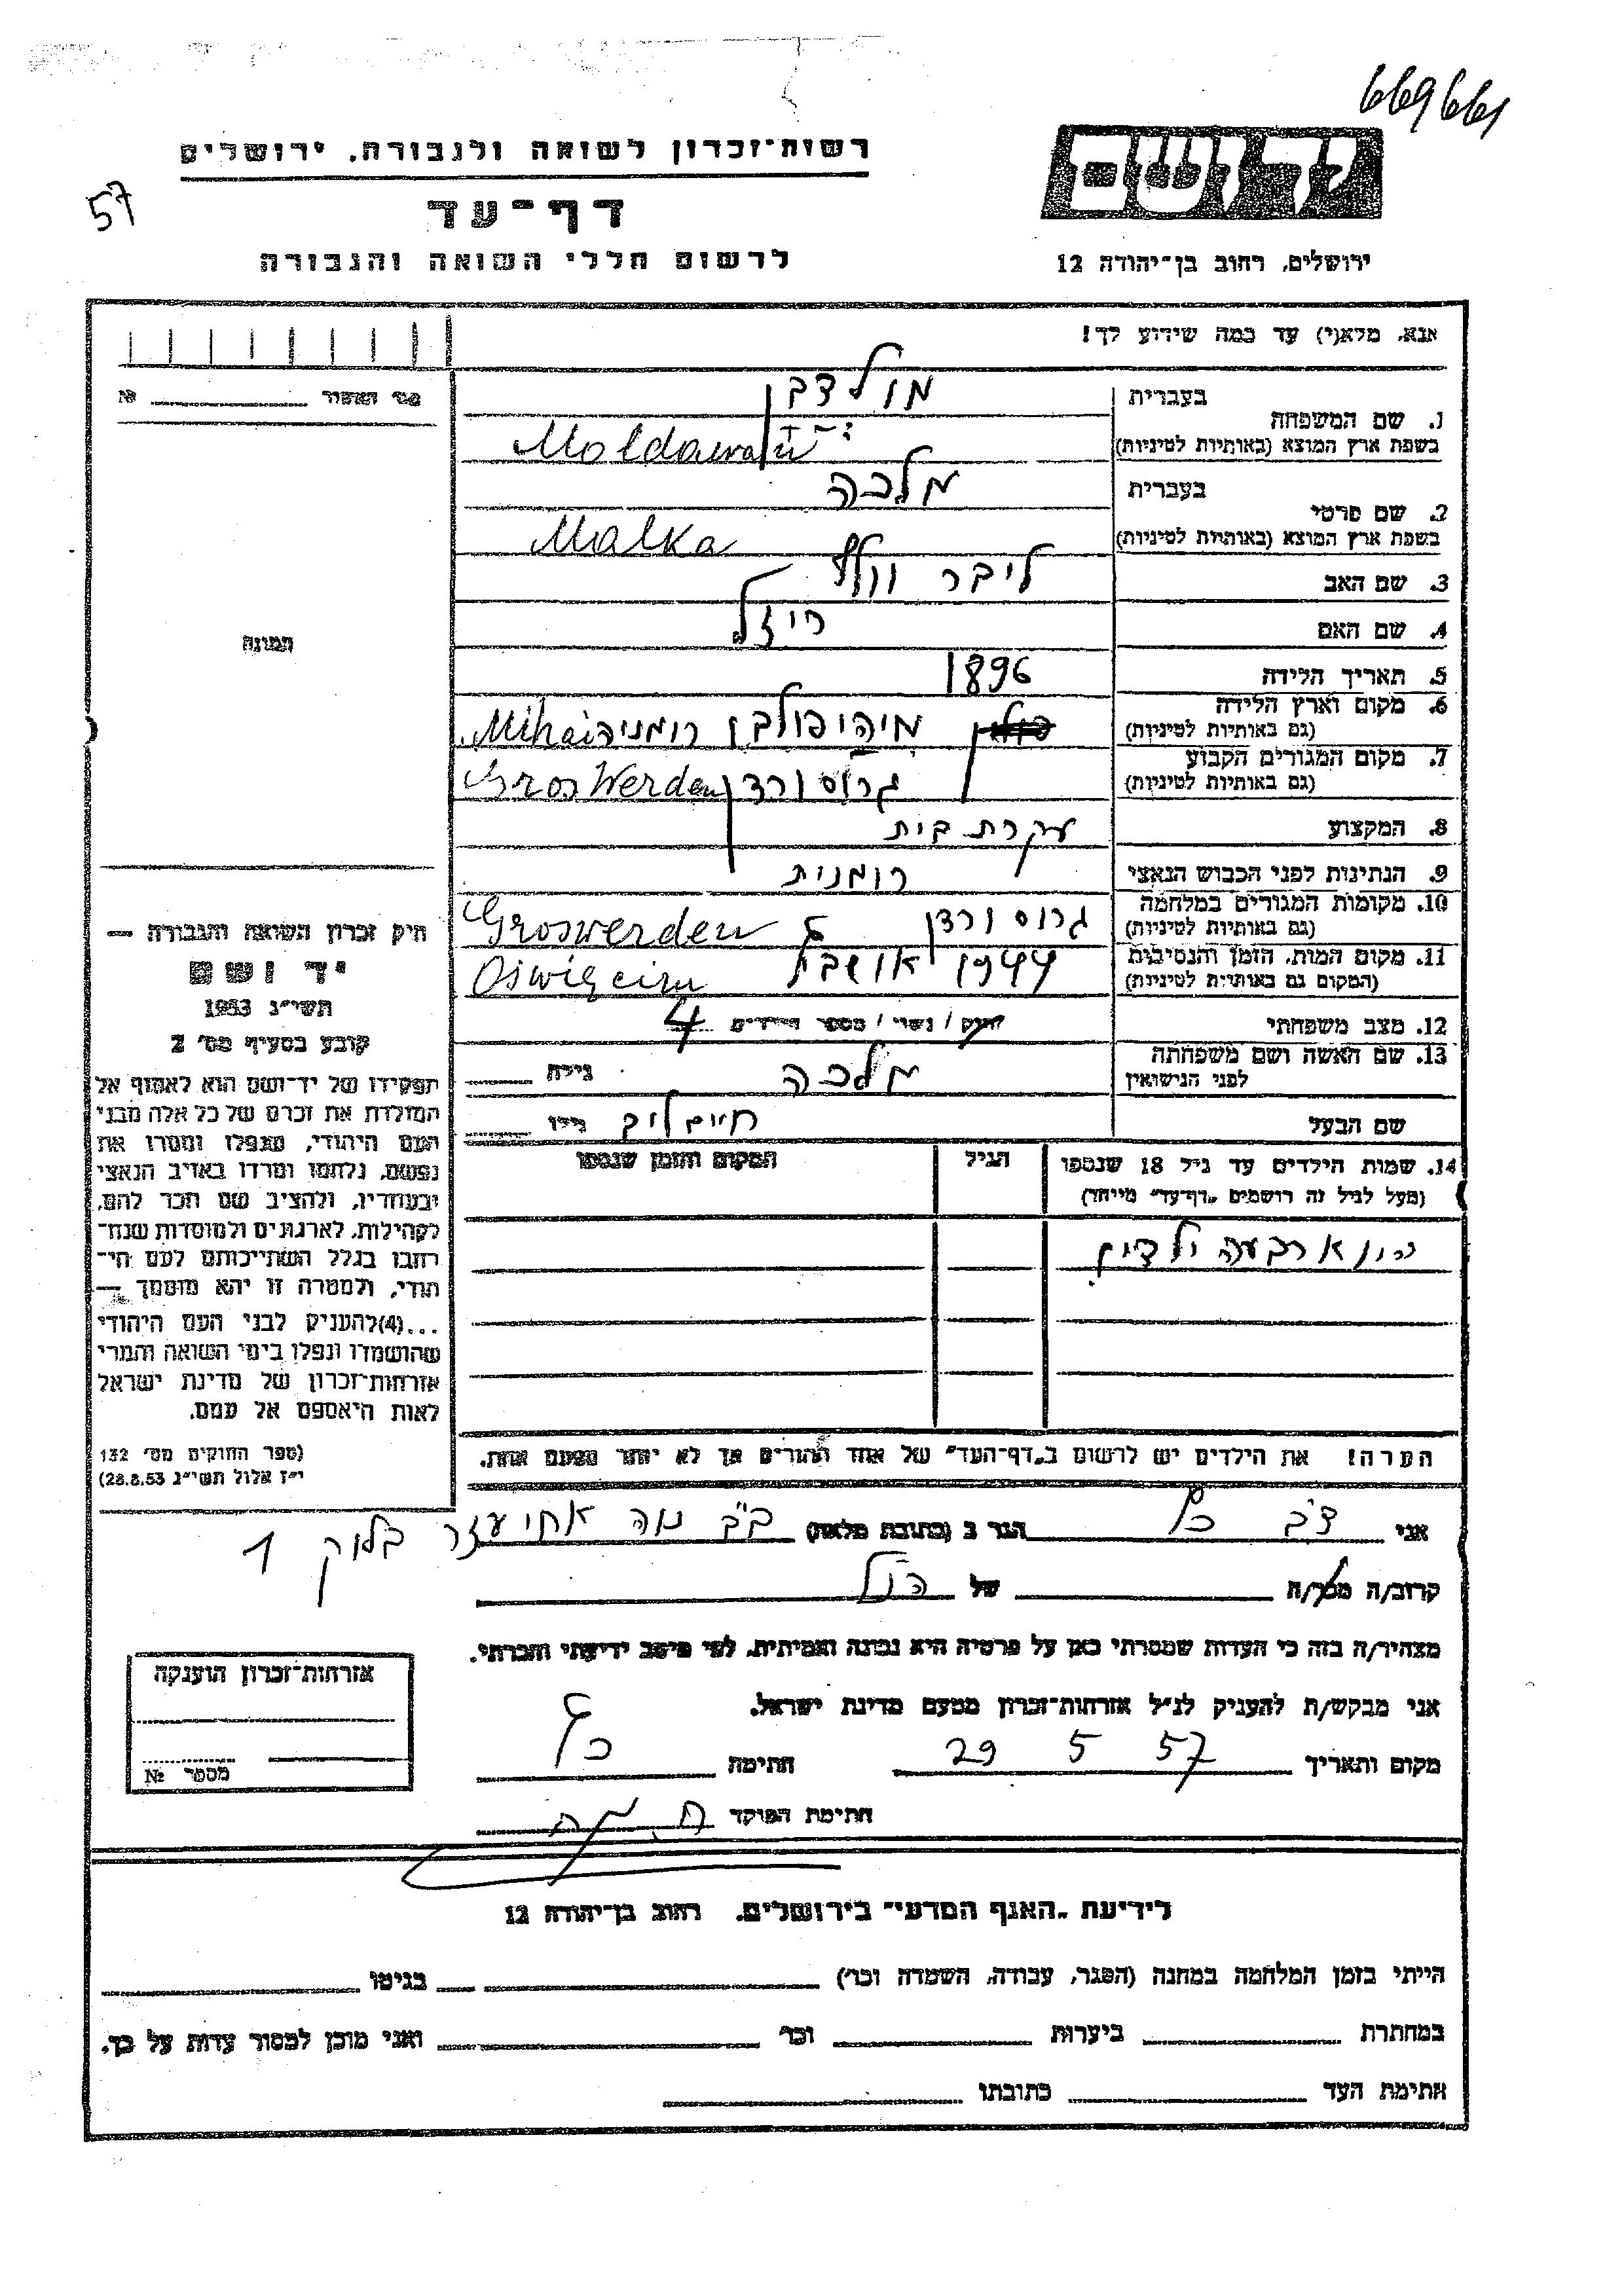 669661
רשות־זכרון לשואה ולגבורה. ירושלים
57
דף־עד
לרשום חללי השואה והגבורה
ירושלים, רחוב בן־יהודה 12
אנא, מלא(י) עד כמה שידוע לך!
מס' האשור № 
1. שם המשפחה בעברית
בשפת ארץ המוצא (באותיות לטיניות)
2. שם פרטי בעברית מלכה
בשפת ארץ המוצא (באותיות לטיניות) Malka
3. שם האב ליבר וולף
4. שם האם רייזל
5. תאריך הלידה 1896
6. מקום וארץ הלידה
(גם באותיות לטיניות) רומניה Mihai
7. מקום המגורים הקבוע
(גם באותיות לטיניות) גרוסורדן GrosWerden
8. המקצוע עקרת בית
9. הנתינות לפני הכבוש הנאצי רומנית
10. מקומות המגורים במלחמה
(גם באותיות לטיניות) גרוסורדן Groswerden
11. מקום המות, הזמן והנסיבות
(המקום גם באותיות לטיניות) 1944
12. מצב משפחתי רווק / נשוי / מספר הילדים 4
13. שם האשה ושם משפחתה
לפני הנישואין מלכה גילה
שם הבעל חיים לייב גילו
התמונה
חוק זכרון השואה והגבורה —
יד ושם
תשי"ג 1953
קובע בסעיף מס' 2
תפקידו של יד־ושם הוא לאסוף אל
המולדת את זכרם של כל אלה מבני
העם היהודי, שנפלו ומסרו את
נפשם, נלחמו ומרדו באויב הנאצי
ובעוזריו, ולהציב שם וזכר להם,
לקהילות, לארגונים ולמוסדות שנח־
רבו בגלל השתייכותם לעם הי־
הודי, ולמטרה זו יהא מוסמך —
...(4)להעניק לבני העם היהודי
שהושמדו ונפלו בימי השואה והמרי
אזרחות־זכרון של מדינת ישראל
לאות היאספם אל עמם.
(ספר החוקים מס' 132
י"ז אלול תשי"ג 28.8.53)
14. שמות הילדים עד גיל 18 שנספו הגיל המקום והזמן שנספו
(מעל לגיל זה רושמים „דף־עד" מיוחד)
היו ארבעה ילדים
הערה! את הילדים יש לרשום ב„דף־העד" של אחד ההורים אך לא יותר מפעם אחת.
אני כץ הגר ב (כתובת מלאה) ב"ב נוה אחיעזר בלוק 1
קרוב/ה מכר/ה של הנ"ל
מצהיר/ה בזה כי העדות שמסרתי כאן על פרטיה היא נכונה ואמיתית, לפי מיטב ידיעתי והכרתי.
אני מבקש/ת להעניק לנ"ל אזרחות־זכרון מטעם מדינת ישראל.
מקום ותאריך 29 5 57 חתימה כץ
חתימת הפוקד
אזרחות־זכרון הוענקה
מספר №
לידיעת „האגף המדעי" בירושלים. רחוב בן־יהודה 12
הייתי בזמן המלחמה במחנה (הסגר, עבודה, השמדה וכו') בגיטו
במחתרת ביערות וכו' ואני מוכן למסור עדות על כך.
חתימת העד כתובתו